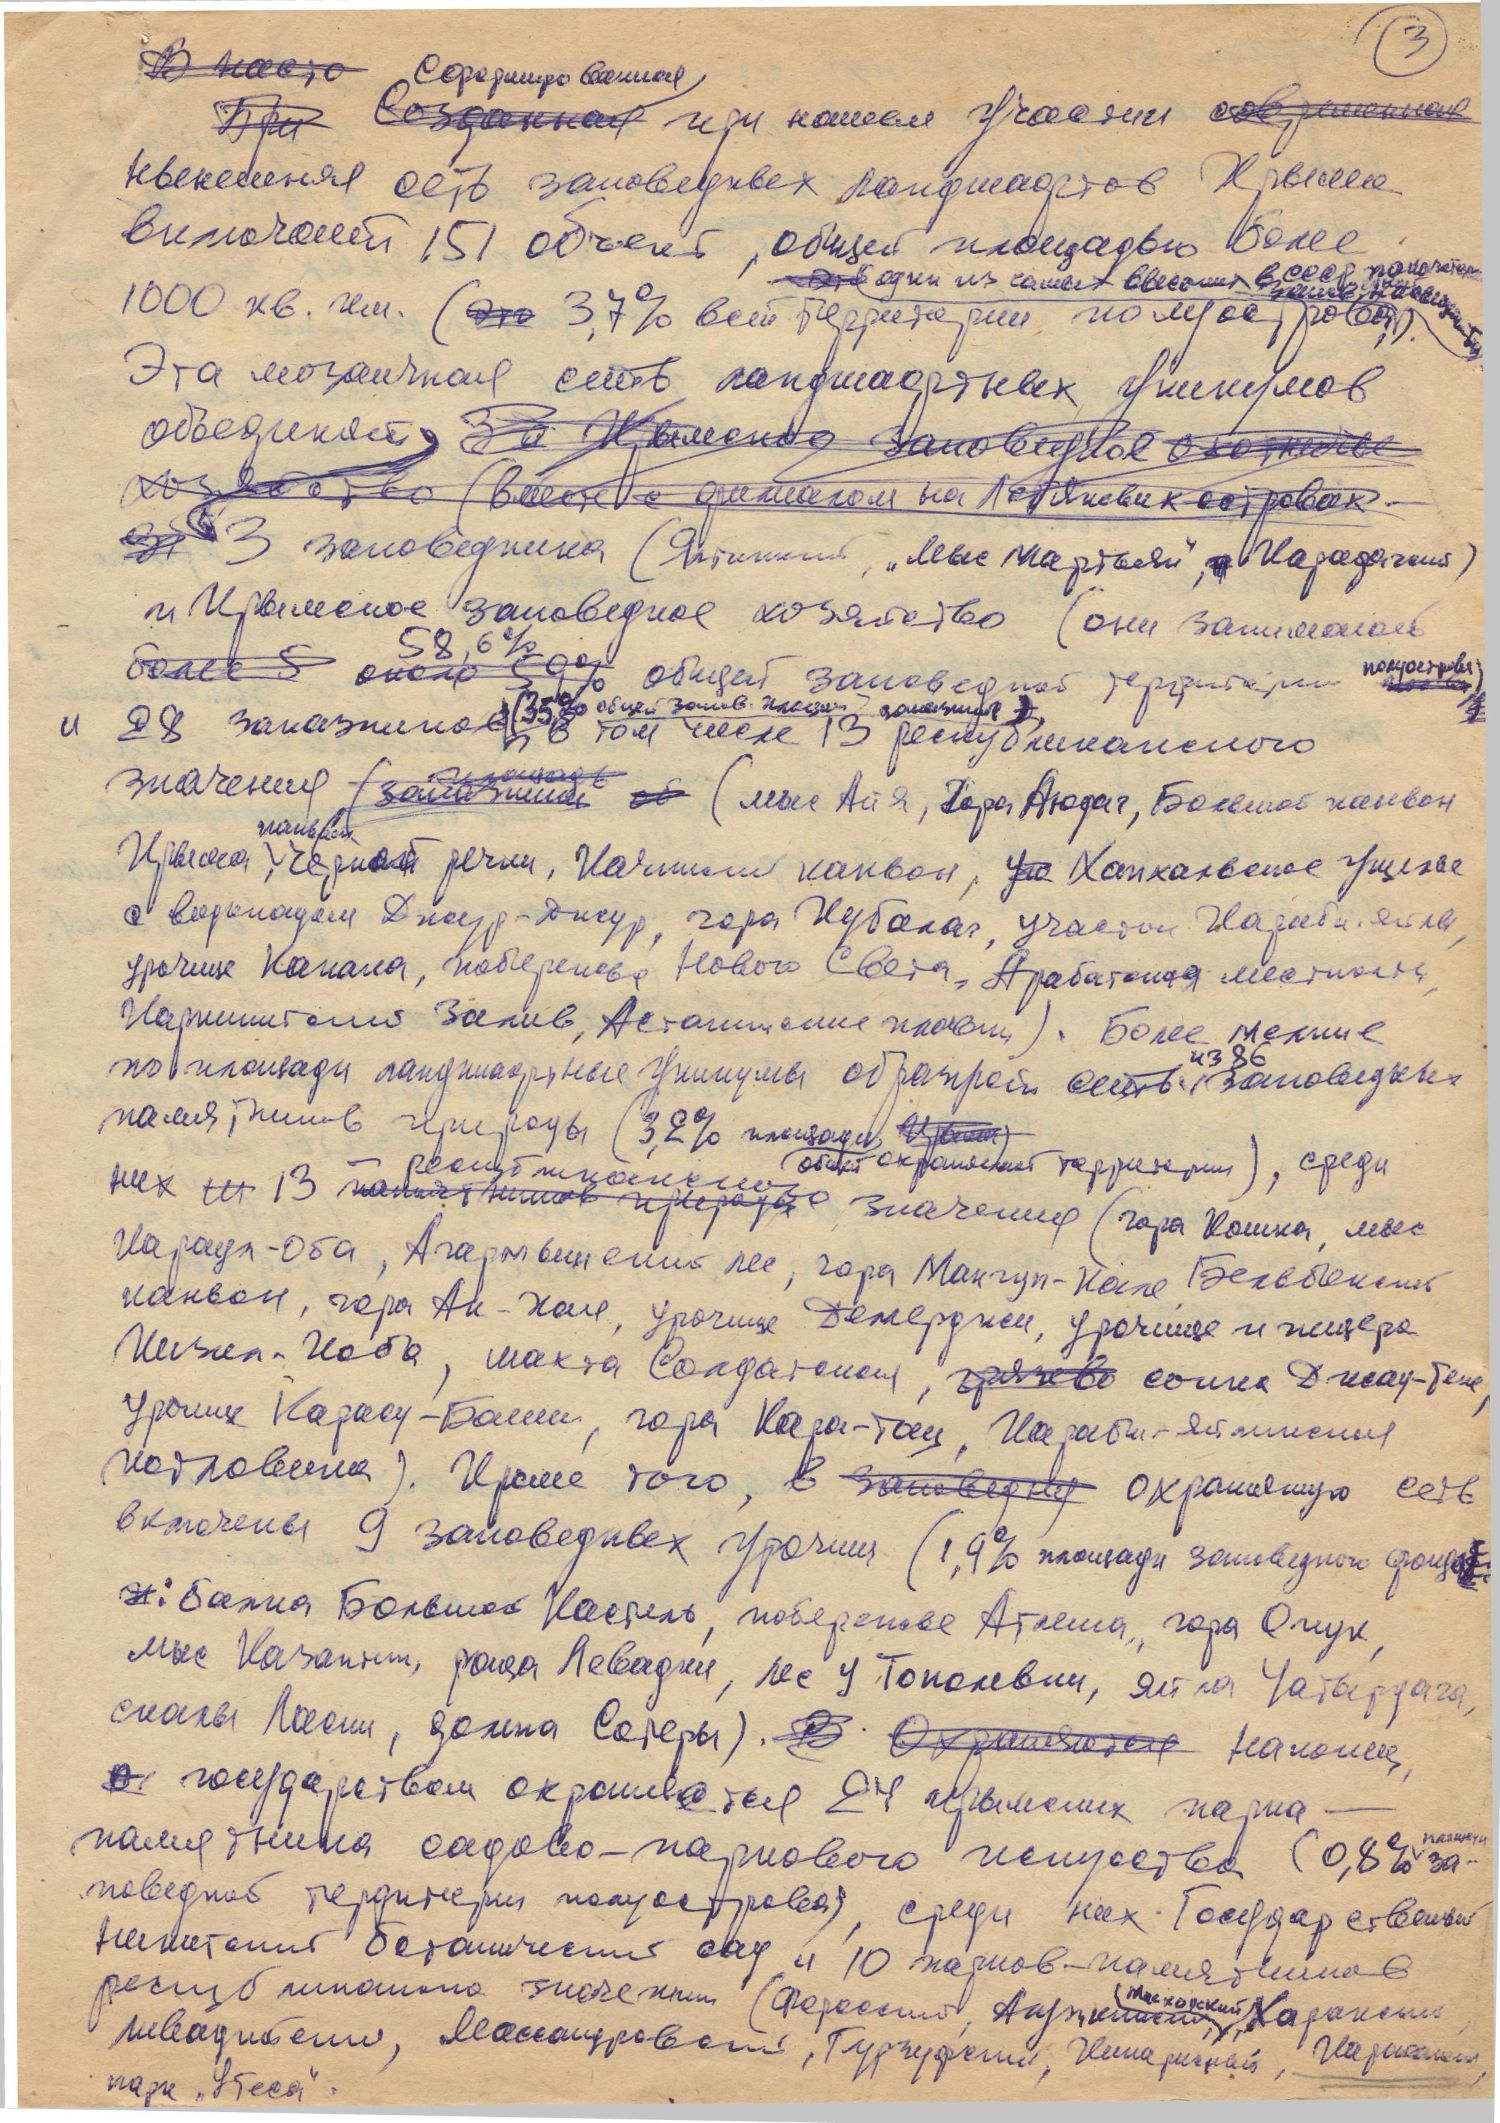 3
В насто Сформированная
При Созданная при нашем участии современная
нынешняя сеть заповедных ландшафтов Крыма
включает 151 объект, общей площадью более
это один из самых высоких в СССР
1000 кв. км. (это 3,7% всей территории полуострова).
Эта мозаичная сеть ландшафтных уникумов
объединяет Крымское заповедное охотничье
хозяйство (вместе с филиалом на Лебяжьих островах
3 заповедника (Ялтинский, „Мыс Мартьян", и Карадагский)
и Крымское заповедное хозяйство (они занимают
58,6%
более 5 около 59% общей заповедной территории полуострова)
(35,% общей запов. площади
и 28 заказников в том числе 13 республиканского
площадь
значения (заказники (мыс Айя, Гора Аюдаг, Большой каньон
каньон
Крыма, Черной речки, Качинский каньон, Хапхальское ущелье
с водопадом Джур-Джур, гора Кубалач, участок Караби-яйлы,
урочище Канака, побережье Нового Света, Арабатская местность,
Каркинитский залив, Астанинские плавни). Более мелкие
из 86
по площади ландшафтные уникумы образуют сеть заповедных
памятников природы (3,2% площади Крыма)
республиканского общей охраняемой территории), среди
них 13 памятников природы значения (гора Кошка, мыс
Караул-Оба, Агармышский лес, гора Мангуп-Кале, Бельбекский
каньон, гора Ак-Кая, урочище Демерджи, урочище и пещера
Кизил-Коба, шахта Солдатская, грязево сопка Джау-Тепе,
урочище Карасу-Баши, гора Кара-Тау, Караби-яйлинская
котловина). Кроме того, в заповедну охраняемую сеть
включены 9 заповедных урочищ (1,9% площади заповедного фонда
: балка Большой Кастель, побережье Атлеша, гора Опук,
мыс Казантип, роща Левадки, лес у Тополевки, яйла Чатырдага,
скалы Ласпи, долина Сотеры). Охраняются Наконец,
государством охраняется 24 крымских парка —
памятника садово-паркового искусства (0,8% площади за-
поведной территории полуострова), среди них Государственный
Никитский ботанический сад и 10 парков-памятников
республиканского значения (Форосский, Алупкинский, Мисхорский, Харакский,
Ливадийский, Массандровский, Гурзуфский, Кипарисный, Карасанский,
парк „Утёса".